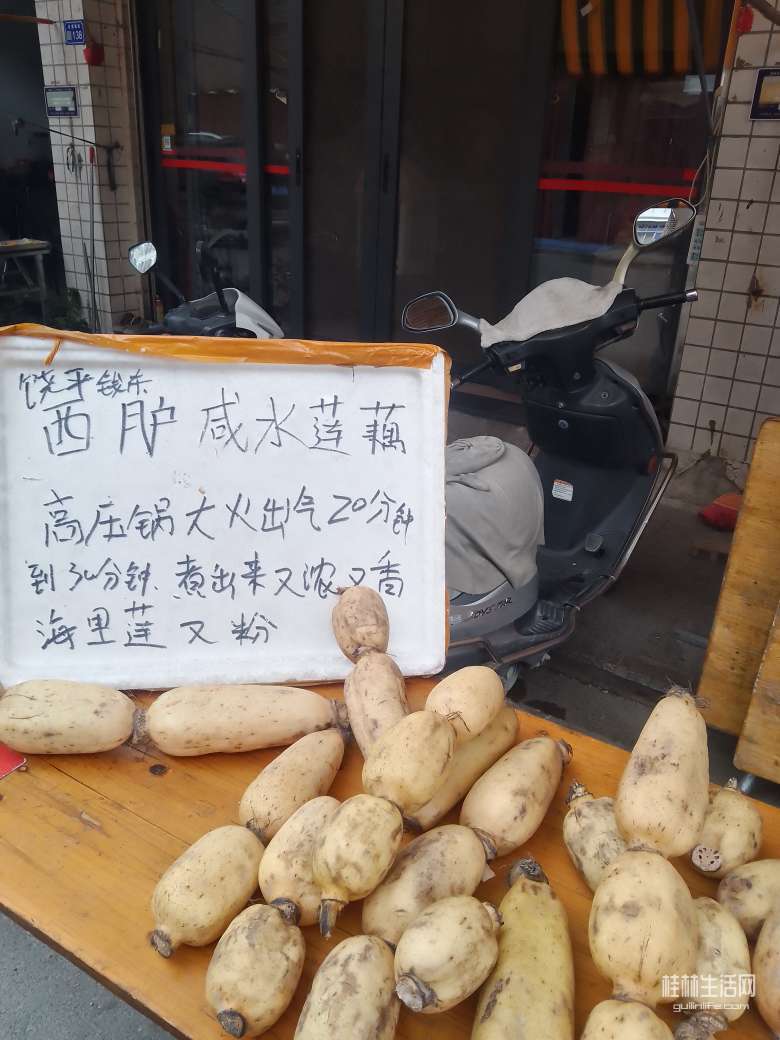 138
饶平钱东
西胪咸水莲藕
高压锅大火出气20分钟
到30分钟.煮出来又浓又香
海里莲又粉
桂林生活网
guilinlife.com